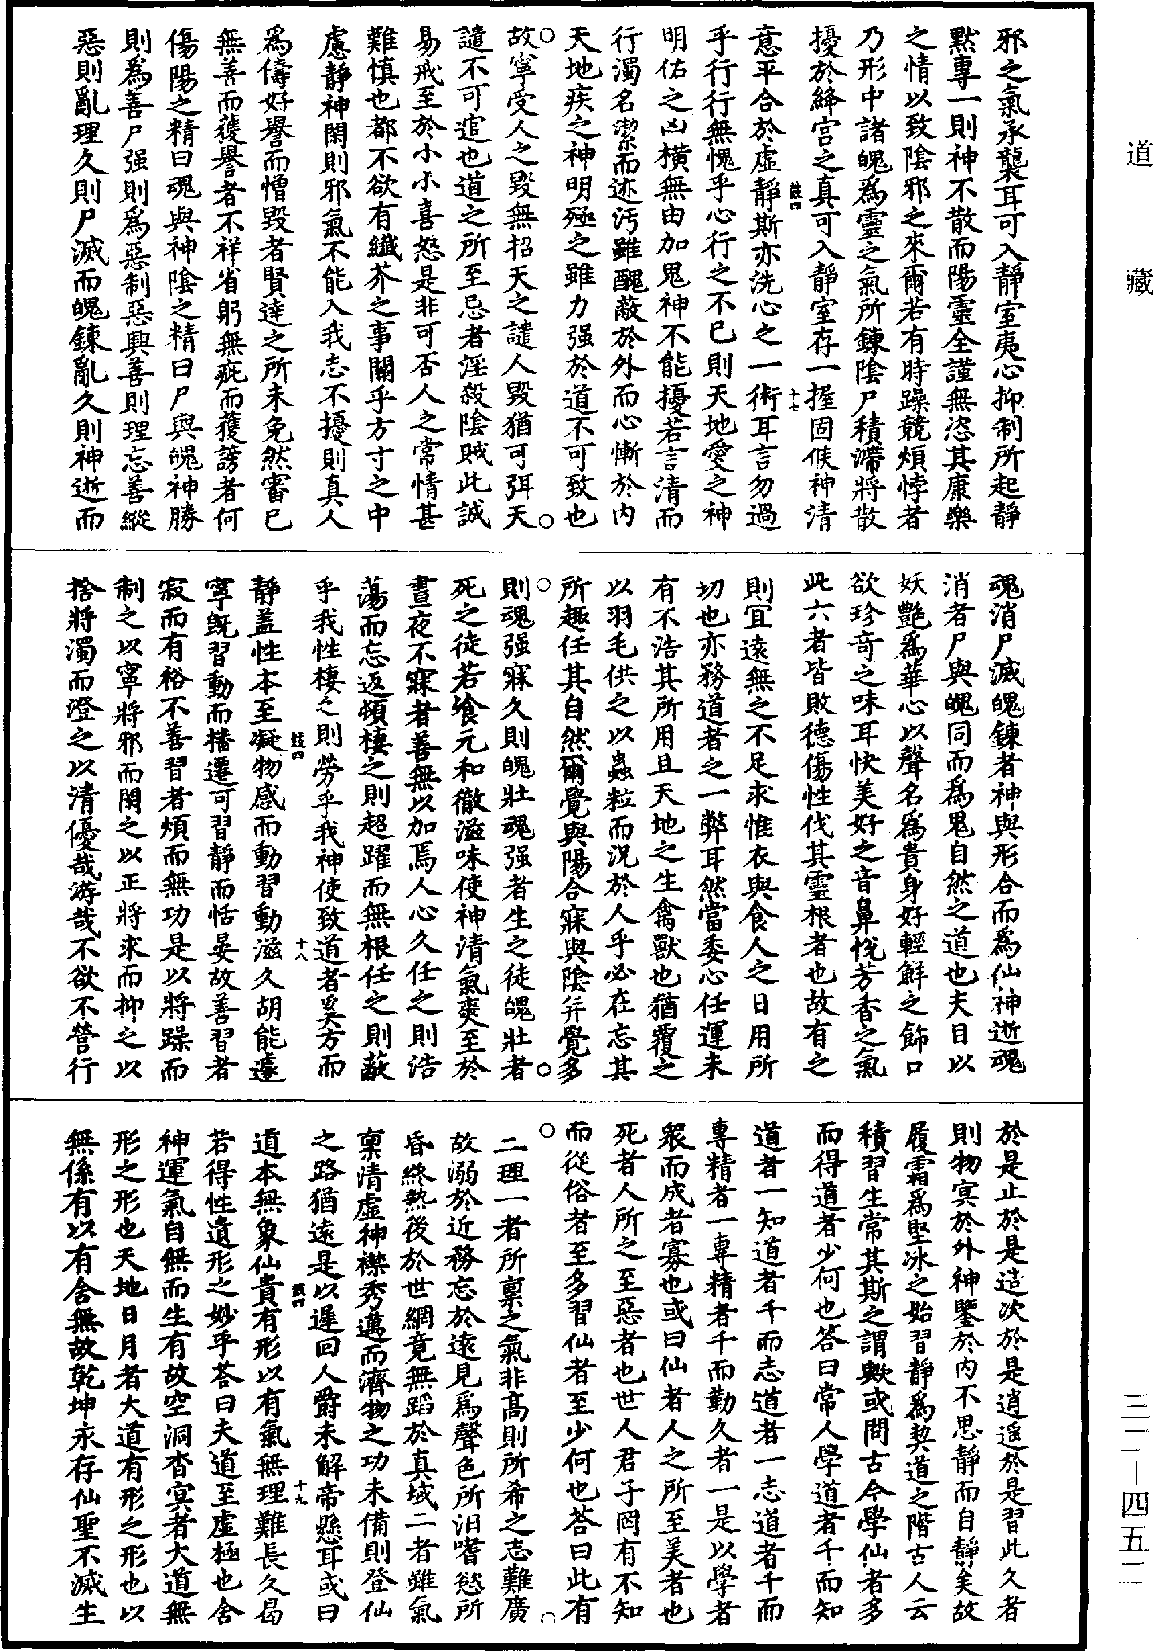 道藏
三二－四五二
邪之氣承襲耳可入靜室夷心抑制所起靜
黙專一則神不散而陽靈全謹無恣其康樂
之情以致陰邪之來爾若有時躁競煩悖者
乃形中諸魄爲靈之氣所鍊陰尸積滯將散
擾於絳宮之真可入靜室存一握固候神清
鼓四
十七
意平合於虛靜斯亦洗心之一術耳言勿過
乎行行無愧乎心行之不已則天地愛之神
明佑之凶橫無由加鬼神不能擾若言清而
行濁名潔而迹汚雖醜蔽於外而心慚於内
天地疾之神明殛之雖力强於道不可致也
故寧受人之毀無招天之譴人毀猶可弭天
譴不可逭也道之所至忌者淫殺陰賊此誠
易戒至於小小喜怒是非可否人之常情甚
難慎也都不欲有纖芥之事關乎方寸之中
慮靜神閑則邪氣不能入我志不擾則真人
爲儔好譽而憎毀者賢達之所未免然審已
無善而獲譽者不祥省躬無疵而獲謗者何
傷陽之精曰魂與神陰之精曰尸與魄神勝
則爲善尸强則爲惡制惡興善則理忘善縱
惡則亂理久則尸滅而魄鍊亂久則神逝而
魂消尸滅魄鍊者神與形合而爲仙神逝魂
消者尸與魄同而爲鬼自然之道也夫目以
妖艷爲華心以聲名爲貴身好輕鮮之飾口
欲珍奇之味耳快美好之音鼻悅芳香之氣
此六者皆敗德傷性伐其靈根者也故有之
則宜遠無之不足求惟衣與食人之日用所
切也亦務道者之一弊耳然當委心任運未
有不浩其所用且天地之生禽獸也猶覆之
以羽毛供之以蟲粒而況於人乎必在忘其
所趣任其自然爾覺與陽合寐與陰并覺多
則魂强寐久則魄壯魂强者生之徒魄壯者
死之徒若飡元和徹滋味使神清氣爽至於
晝夜不寐者善無以加焉人心久任之則浩
蕩而忘返頓棲之則超躍而無根任之則蔽
乎我性棲之則勞乎我神使致道者奚方而
鼓四
十八
靜蓋性本至凝物感而動習動滋久胡能遽
寧旣習動而播遷可習靜而恬晏故善習者
寂而有裕不善習者煩而無功是以將躁而
制之以寧將邪而閑之以正將求而抑之以
捨將濁而澄之以清優哉游哉不欲不營行
於是止於是造次於是逍遥於是習此久者
則物冥於外神鑒於内不思靜而自靜矣故
履霜爲堅冰之始習靜爲契道之階古人云
積習生常其斯之謂歟或問古今學仙者多
而得道者少何也答曰常人學道者千而知
道者一知道者千而志道者一志道者千而
專精者一專精者千而勤久者一是以學者
衆而成者寡也或曰仙者人之所至美者也
死者人所之至惡者也世人君子罔有不知
而從俗者至多習仙者至少何也荅曰此有
二理一者所禀之氣非高則所希之志難廣
故溺於近務忘於遠見爲聲色所汩嗜慾所
昏終熱後於世網竟無蹈於真域二者雖氣
禀清虛神襟秀邁而濟物之功未備則登仙
之路猶遠是以遲回人爵未解帝懸耳或曰
鼓四
十九
道本無象仙貴有形以有氣無理難長久曷
若得性遺形之妙乎荅曰夫道至虛極也舍
神運氣自無而生有故空洞杳冥者大道無
形之形也天地日月者大道有形之形也以
無係有以有舍無故乾坤永存仙聖不滅生